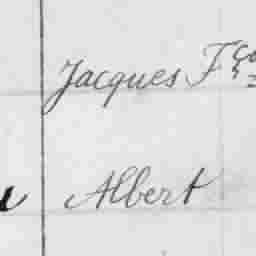 Jacques Fço
Albert